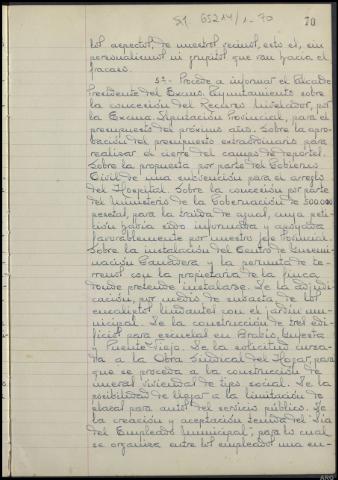 51 65214/1-70
70
tos aspectos, de nuestros gremios, esto es, sin
personalismos ni grupitos que van hacia el
fracaso.
5º- Procede a informar el Alcalde
Presidente del Excmo. Ayuntamiento sobre
la concesión del Recurso Nivelador, por
la Excma. Diputación Provincial, para el
presupuesto del próximo año. Sobre la apro-
bación del presupuesto extraordinario para
realizar el cierre del campo de deportes.
Sobre la propuesta por parte del Gobierno
Civil de una subvención para el arreglo
del Hospital. Sobre la concesión por parte
del Ministerio de la Gobernación de 500.000
pesetas, para la traida de aguas, cuya peti-
ción había sido informada y apoyada
favorablemente por nuestro jefe Provincial.
Sobre la instalación del Centro de Insemi-
nación Ganadera y la permuta de te-
rrenos con la propietaria de la finca
donde pretende instalarse. De la adjudi-
cación, por medio de subasta de los
eucaliptos lindantes con el jardin mu-
nicipal. De la construcción de tres edi-
ficios para escuelas en Bravio, Infesta
y Puente Viejo. De la solicitud cursa-
da a la Obra Sindical del Hogar, para
que se proceda a la construcción de
nuevas viviendas de tipo social. De la
posibilidad de llegar a la limitación de
placas para autos del servicio público. De
la creación y aceptación tenida del "Dia
del Empleado Municipal", para lo cual
se organiza entre los empleados una en-
ARQ